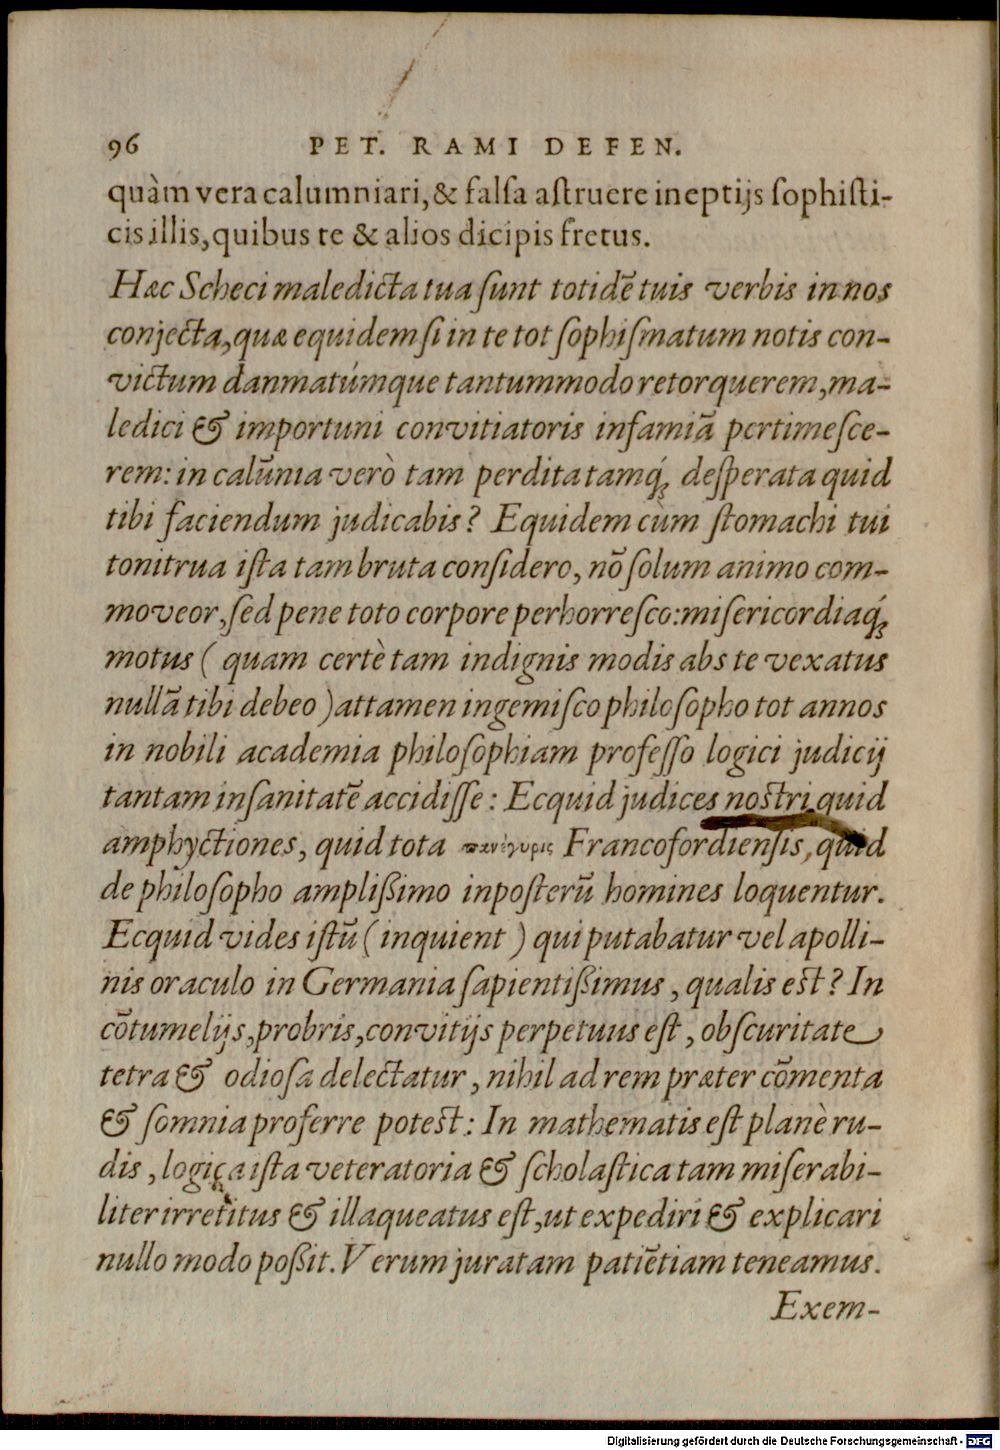 96 PET. RAMI DEFEN.
quàm vera calumniari, & falsa astruere ineptijs sophisti-
cis illis, quibus te & alios dicipis fretus.
Hæc Scheci maledicta tua sunt totidē tuis verbis in nos
conjecta, quæ equidem si in te tot sophismatum notis con-
victum danmatúmque tantummodo retorquerem, ma-
ledici & importuni convitiatoris infamiā pertimesce-
rem: in calūnia verò tam perdita tamq́; desperata quid
tibi faciendum judicabis? Equidem cùm stomachi tui
tonitrua ista tam bruta considero, nō solum animo com-
moveor, sed pene toto corpore perhorresco: misericordiaq́;
motus ( quam certè tam indignis modis abs te vexatus
nullā tibi debeo ) attamen ingemisco philosopho tot annos
in nobili academia philosophiam professo logici judicij
tantam insanitatē accidisse: Ecquid judices nostri, quid
amphyctiones, quid tota πανέγυρις Francofordiensis, quid
de philosopho amplißimo inposterū homines loquentur.
Ecquid vides istū ( inquient ) qui putabatur vel apolli-
nis oraculo in Germania sapientißimus, qualis est? In
cōtumelijs, probris, convitijs perpetuus est, obscuritate
tetra & odiosa delectatur, nihil ad rem præter cōmenta
& somnia proferre potest: In mathematis est planè ru-
dis, logica ista veteratoria & scholastica tam miserabi-
liter irretitus & illaqueatus est, ut expediri & explicari
nullo modo poßit. Verum juratam patiētiam teneamus.
Exem-
Digitalisierung gefördert durch die Deutsche Forschungsgemeinschaft - DFG